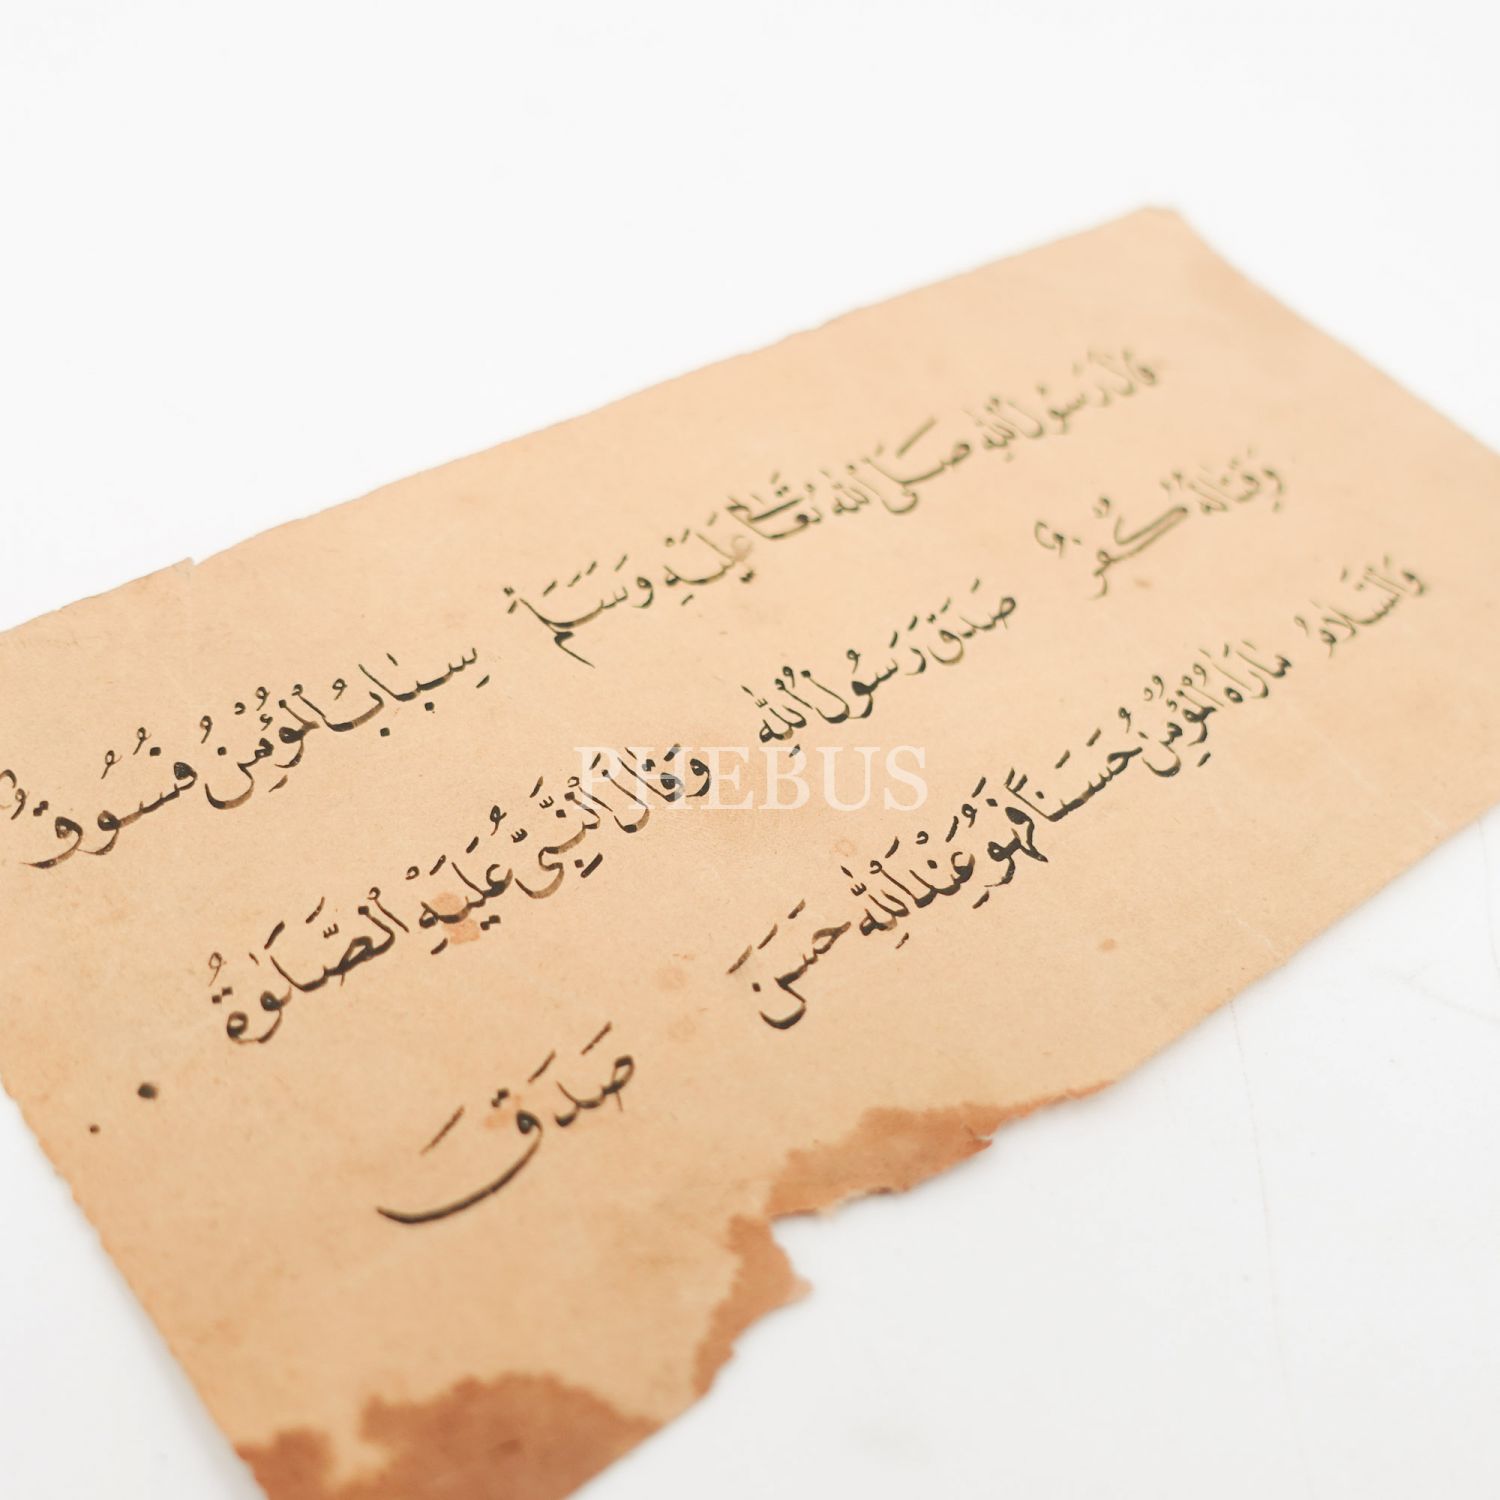 قَالَ رَسُولُ اللهِ صَلَّى اللهُ تَعَالٰى عَلَيْهِ وَسَلَّمَ سِبَابُ الْمُؤْمِنِ فُسُوقٌ
وَقِتَالُهُ كُفْرٌ صَدَقَ رَسُولُ اللهِ وَقَالَ النَّبِيُّ عَلَيْهِ الصَّلَوٰةُ
وَالسَّلَامُ مَا رَاٰهُ الْمُؤْمِنُ حَسَنًا فَهُوَ عِنْدَ اللهِ حَسَنٌ
صَدَقَ
PHEBUS